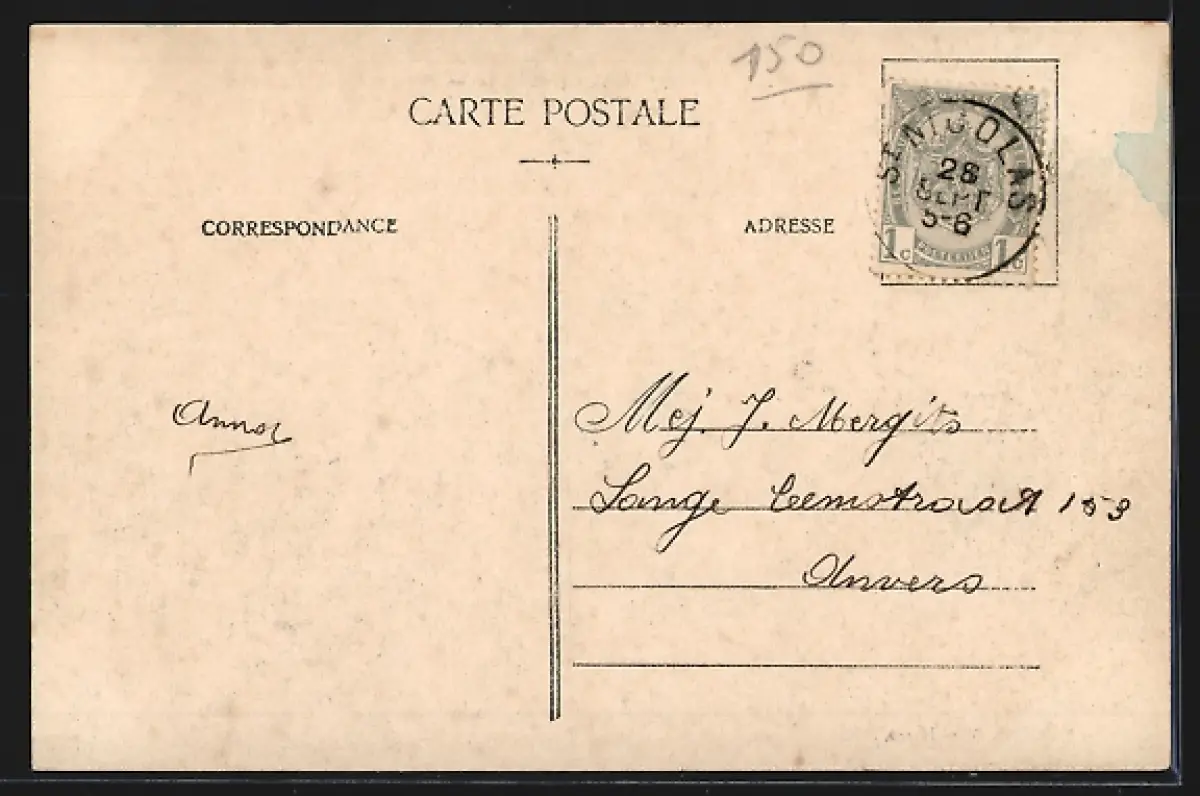 150
CARTE POSTALE
CORRESPONDANCE
ADRESSE
ST NICOLAS
28
SEPT
5-6
1c 1c
Anna
Mej. J. Mergits
Lange Leemstraat 153
Anvers